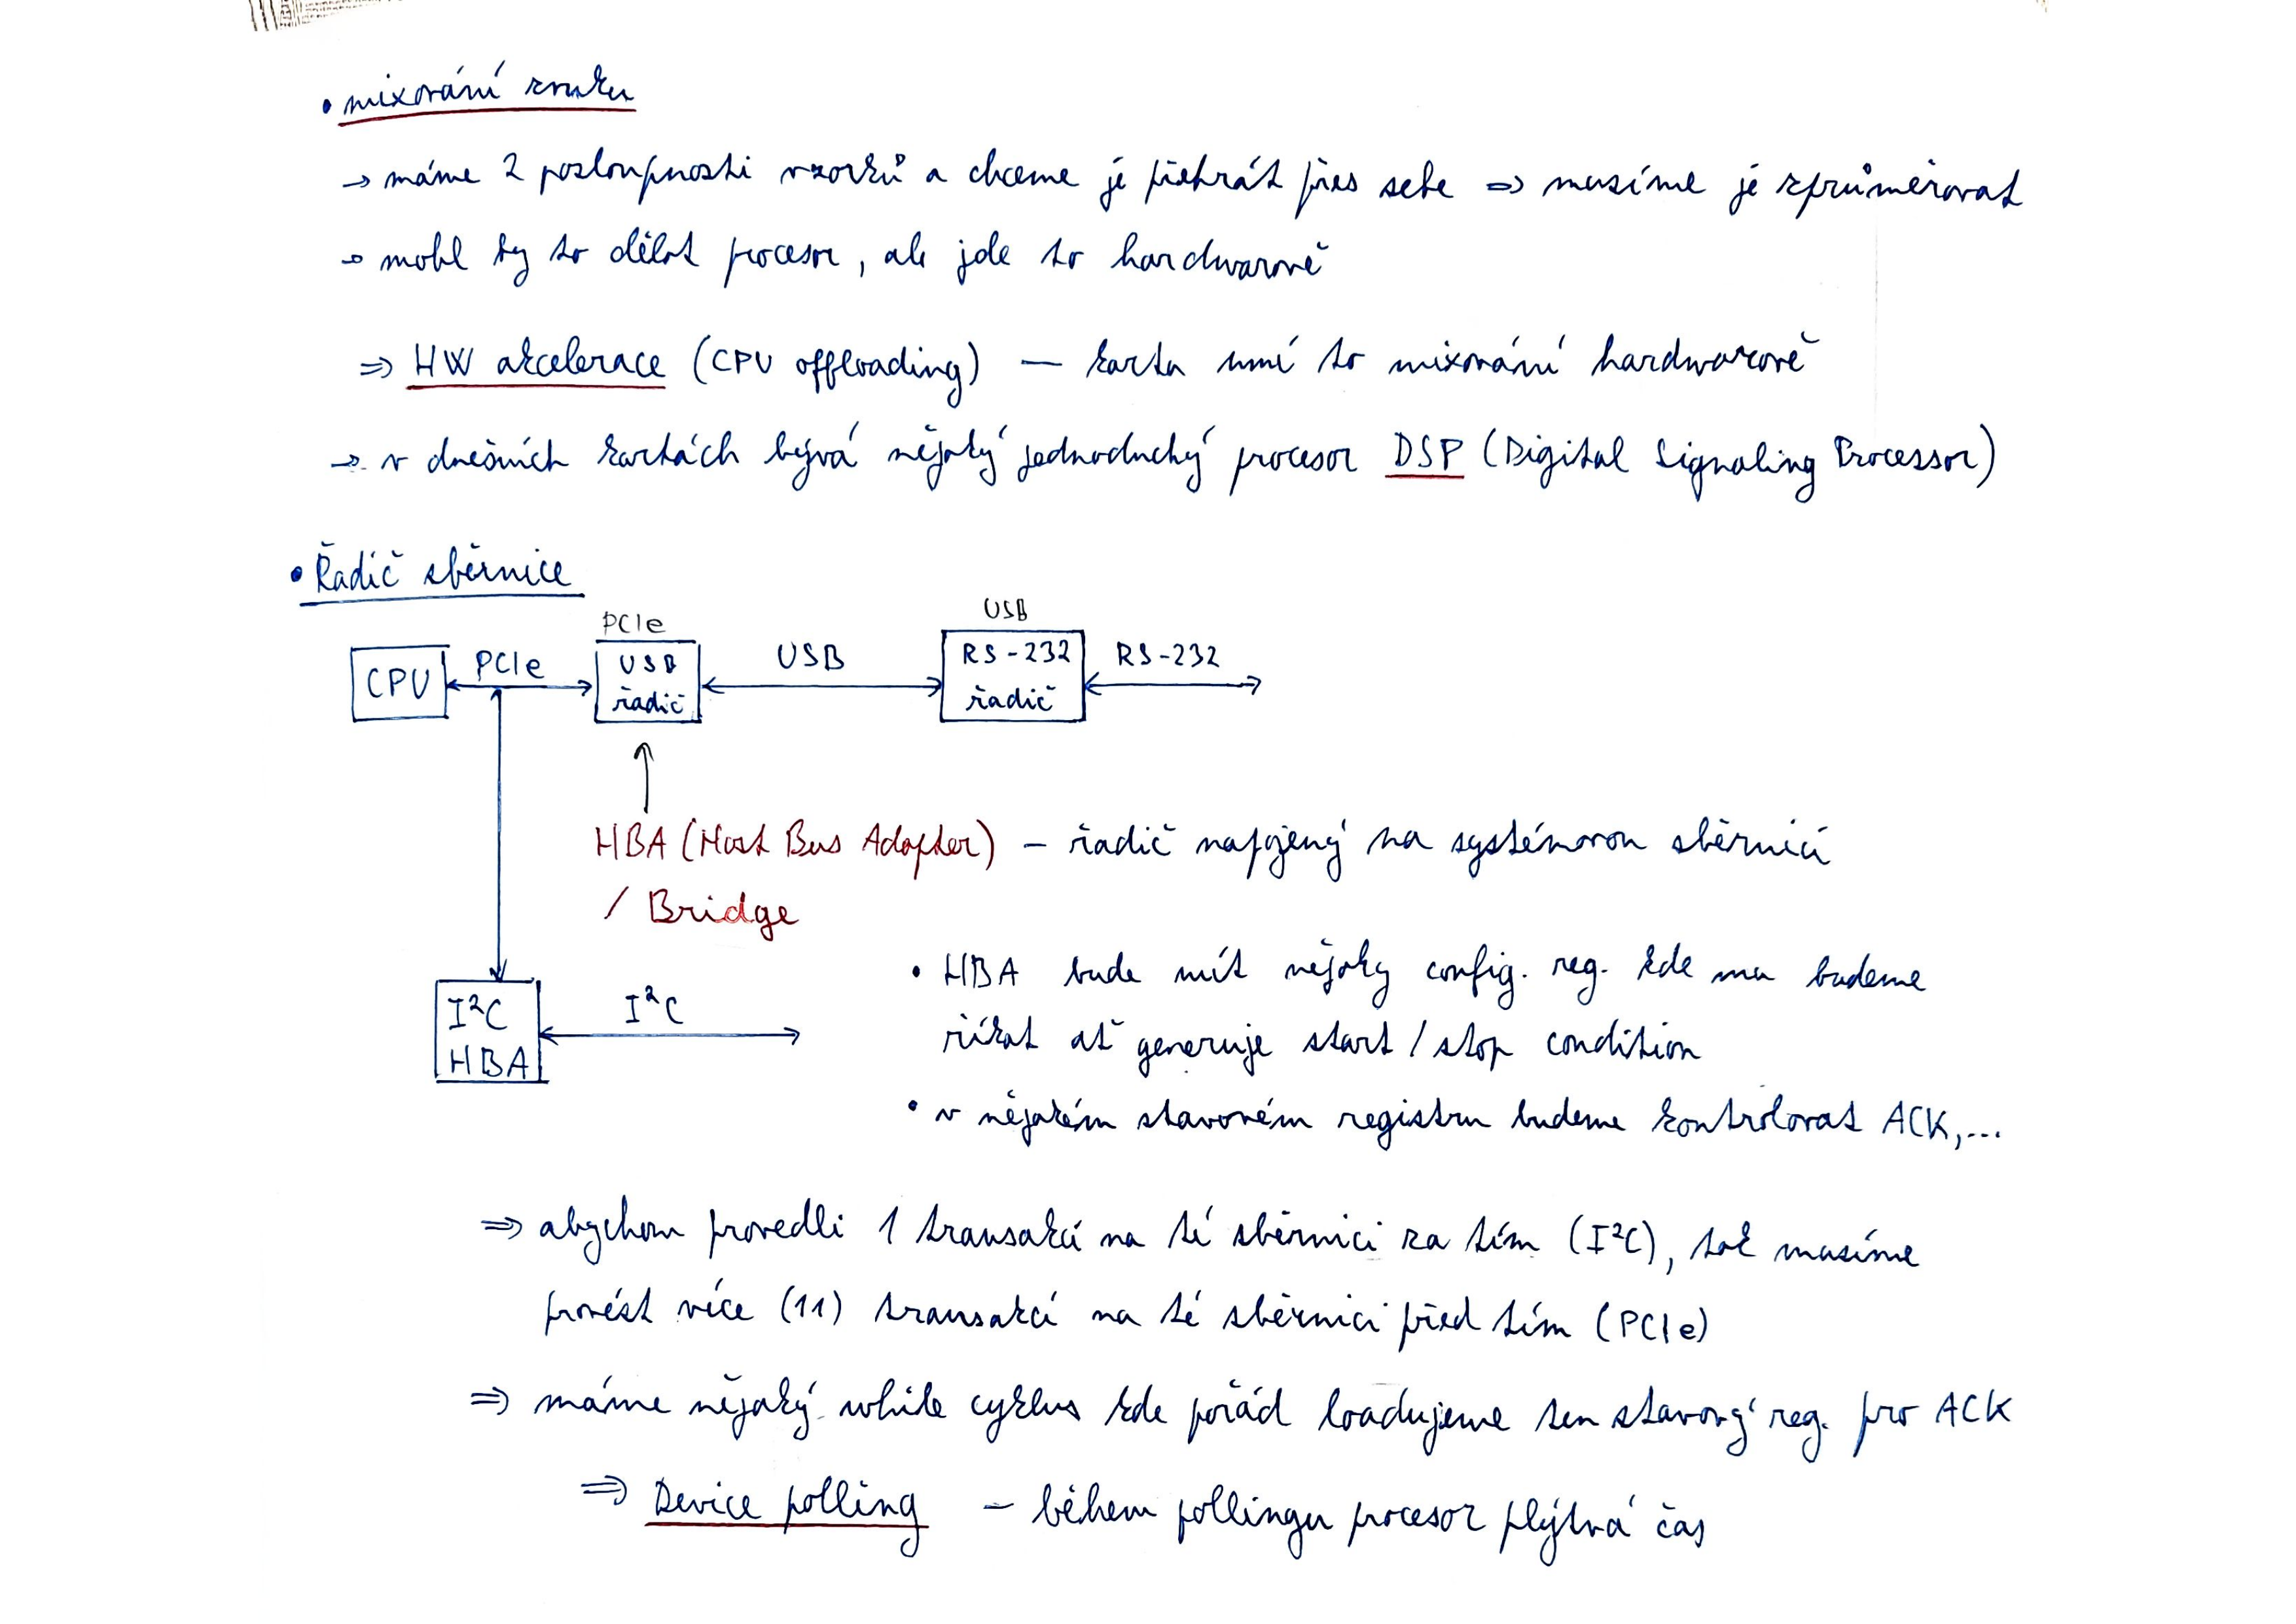 • mixování zvuku
→ máme 2 posloupnosti vzorků a chceme je přehrát přes sebe ⇒ musíme je zprůměrovat
→ mohl by to dělat procesor, ale jde to hardwarově
⇒ HW akcelerace (CPU offloading) — karta umí to mixování hardwarově
→ v dnešních kartách bývá nějaký jednoduchý procesor DSP (Digital Signaling Processor)
• Řadič sběrnice
PCIe
USB
CPU
PCIe
USB
řadič
USB
RS-232
řadič
RS-232
HBA (Host Bus Adapter) – řadič napojený na systémovou sběrnici
/ Bridge
I²C
HBA
I²C
• HBA bude mít nějaky config. reg. kde mu budeme
říkat ať generuje start / stop condition
• v nějakém stavovém registru budeme kontrolovat ACK,...
⇒ abychom provedli 1 transakci na té sběrnici za tím (I²C), tak musíme
provést více (11) transakcí na té sběrnici před tím (PCIe)
⇒ máme nějaký while cyklus kde pořád loadujeme ten stavový reg. pro ACK
⇒ Device polling – během pollingu procesor plýtvá čas